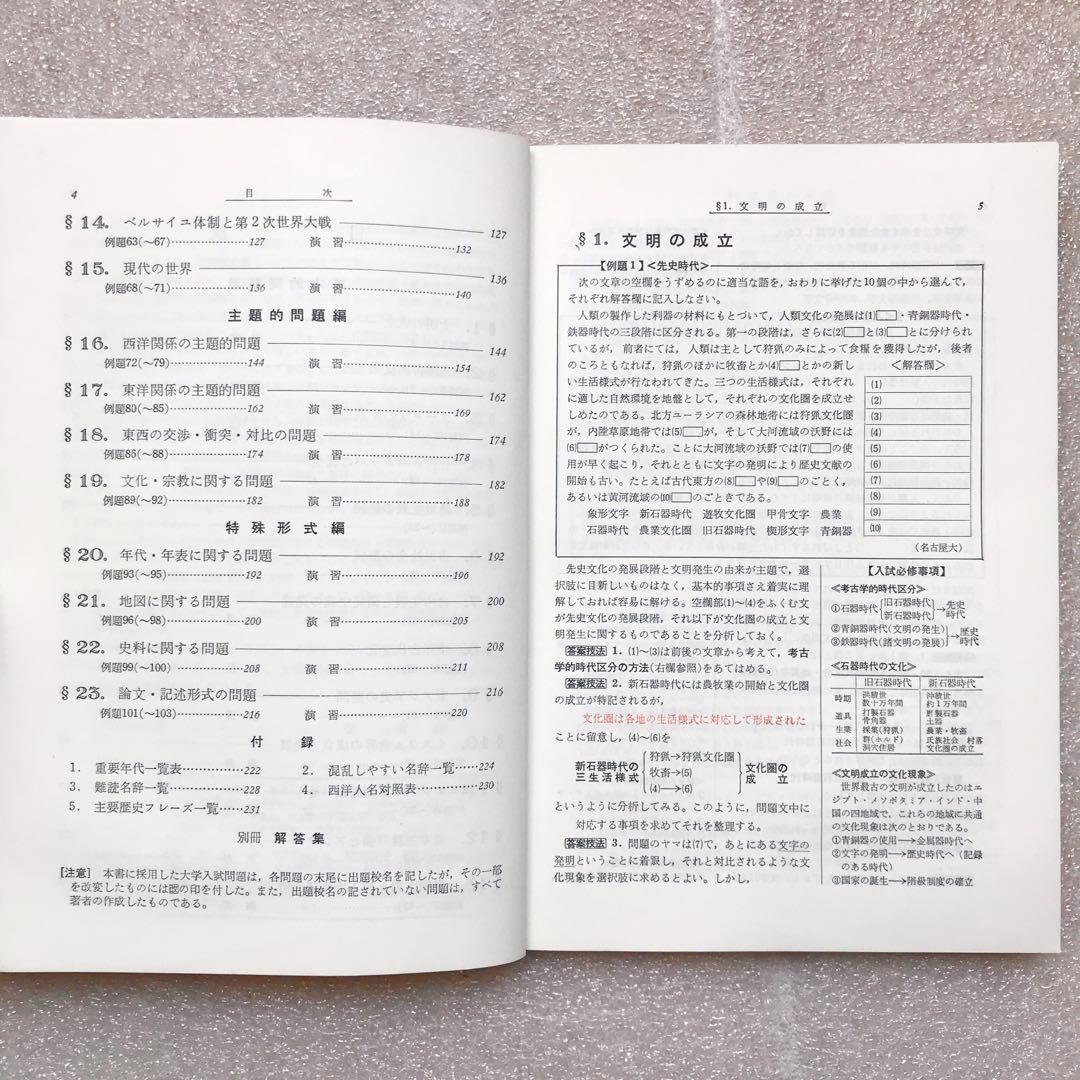 4 目次
§14. ベルサイユ体制と第2次世界大戦 127
例題63(〜67)……127 演習……132
§15. 現代の世界 136
例題68(〜71)……136 演習……140
主題的問題編
§16. 西洋関係の主題的問題 144
例題72(〜79)……144 演習……154
§17. 東洋関係の主題的問題 162
例題80(〜85)……162 演習……169
§18. 東西の交渉・衝突・対比の問題 174
例題86(〜88)……174 演習……178
§19. 文化・宗教に関する問題 182
例題89(〜92)……182 演習……188
特殊形式編
§20. 年代・年表に関する問題 192
例題93(〜95)……192 演習……196
§21. 地図に関する問題 200
例題96(〜98)……200 演習……205
§22. 史料に関する問題 208
例題99(〜100)……208 演習……211
§23. 論文・記述形式の問題 216
例題101(〜103)……216 演習……220
付録
1. 重要年代一覧表……222 2. 混乱しやすい名辞一覧……224
3. 難読名辞一覧……228 4. 西洋人名対照表……230
5. 主要歴史フレーズ一覧……231
別冊 解答集
[注意] 本書に採用した大学入試問題は，各問題の末尾に出題校名を記したが，その一部
を改変したものには の印を付した。また，出題校名の記されていない問題は，すべて
著者の作成したものである。
§1. 文明の成立 5
§1. 文明の成立
【例題1】<先史時代>
次の文章の空欄をうずめるのに適当な語を，おわりに挙げた10個の中から選んで，
それぞれ解答欄に記入しなさい。
人類の製作した利器の材料にもとづいて，人類文化の発展は(1)□・青銅器時代・
鉄器時代の三段階に区分される。第一の段階は，さらに(2)□と(3)□とに分けられ
ているが，前者にては，人類は主として狩猟のみによって食糧を獲得したが，後者
のころともなれば，狩猟のほかに牧畜とか(4)□とかの新し
い生活様式が行なわれてきた。三つの生活様式は，それぞれ
に適した自然環境を地盤として，それぞれの文化圏を成立せ
しめたのである。北方ユーラシアの森林地帯には狩猟文化圏
が，内陸草原地帯では(5)□が，そして大河流域の沃野には
(6)□がつくられた。ことに大河流域の沃野では(7)□の使
用が早く起こり，それとともに文字の発明により歴史文献の
開始も古い。たとえば古代東方の(8)□や(9)□のごとく，
あるいは黄河流域の(10)□のごときである。
象形文字 新石器時代 遊牧文化圏 甲骨文字 農業
石器時代 農業文化圏 旧石器時代 楔形文字 青銅器
<解答欄>
(1)
(2)
(3)
(4)
(5)
(6)
(7)
(8)
(9)
(10)
(名古屋大)
先史文化の発展段階と文明発生の由来が主題で，選
択肢に目新しいものはなく，基本的事項さえ着実に理
解しておれば容易に解ける。空欄部(1)〜(4)をふくむ文
が先史文化の発展段階，それ以下が文化圏の成立と文
明発生に関するものであることを分析しておく。
答案技法 1. (1)〜(3)は前後の文章から考えて，考古
学的時代区分の方法(右欄参照)をあてはめる。
答案技法 2. 新石器時代には農牧業の開始と文化圏
の成立が特記されるが，
文化圏は各地の生活様式に対応して形成された
ことに留意し，(4)〜(6)を
新石器時代の三生活様式 {狩猟→狩猟文化圏 牧畜→(5) (4)→(6)} 文化圏の成立
というように分析してみる。このように，問題文中に
対応する事項を求めてそれを整理する。
答案技法 3. 問題のヤマは(7)で，あとにある文字の
発明ということに着眼し，それと対比されるような文
化現象を選択肢に求めるとよい。しかし，
【入試必修事項】
<考古学的時代区分>
①石器時代{旧石器時代 新石器時代}→先史時代
②青銅器時代(文明の発生)
③鉄器時代(諸文明の発展)}→歴史時代
<石器時代の文化>
旧石器時代 新石器時代
時期 洪積世 数十万年間 沖積世 約1万年間
道具 打製石器 骨角器 磨製石器 土器
生業 採集(狩猟) 農業・牧畜
社会 群(ホルド) 洞穴住居 氏族社会 村落 文化圏の成立
<文明成立の文化現象>
世界最古の文明が成立したのはエ
ジプト・メソポタミア・インド・中
国の四地域で，これらの地域に共通
の文化現象は次のとおりである。
①青銅器の使用→金属器時代へ
②文字の発明→歴史時代へ(記録
のある時代)
③国家の誕生→階級制度の確立